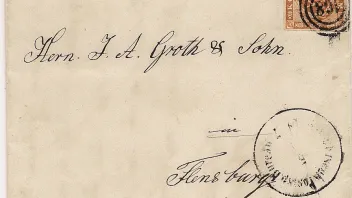 Hern. J. A. Groth & Sohn.
in
Flensburg